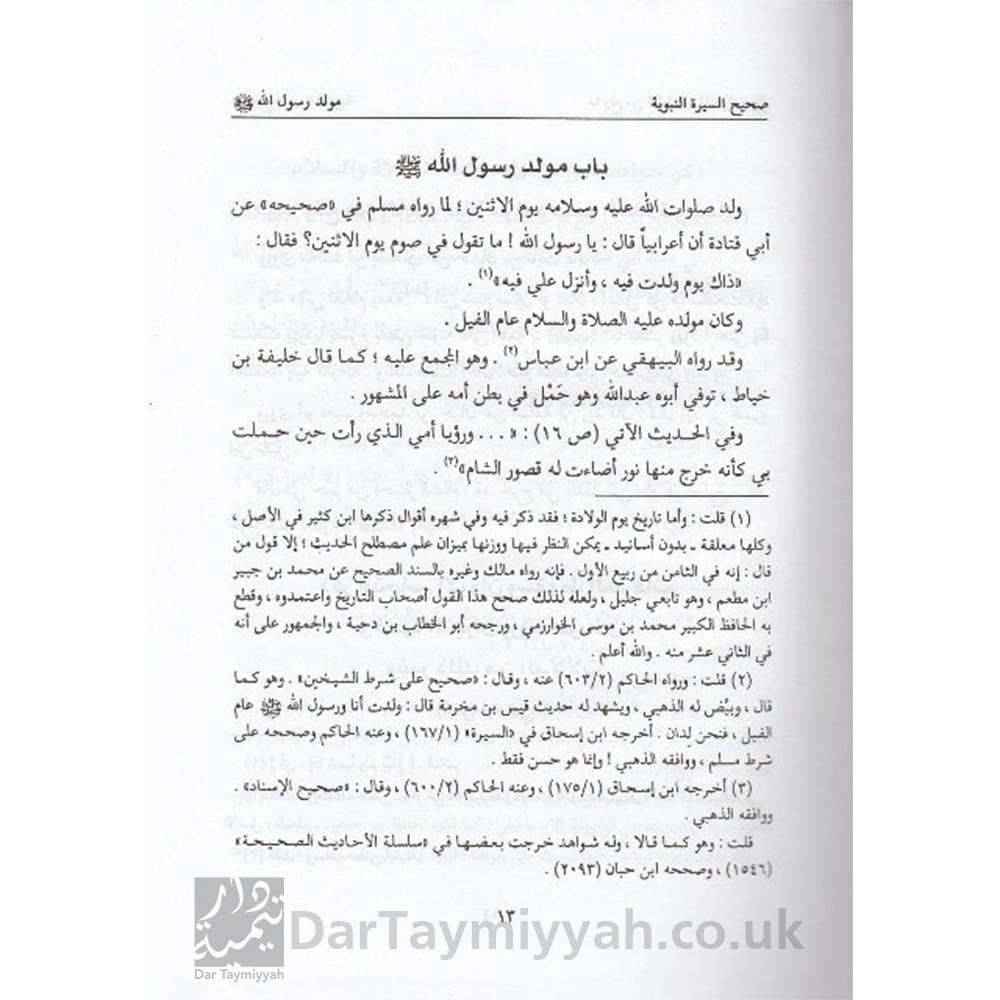 صحيح السيرة النبوية
مولد رسول الله ﷺ
باب مولد رسول الله ﷺ
ولد صلوات الله عليه وسلامه يوم الاثنين ؛ لما رواه مسلم في «صحيحه» عن
أبي قتادة أن أعرابياً قال : يا رسول الله ! ما تقول في صوم يوم الاثنين؟ فقال :
«ذاك يوم ولدت فيه ، وأنزل علي فيه»(١) .
وكان مولده عليه الصلاة والسلام عام الفيل .
وقد رواه البيهقي عن ابن عباس(٢) . وهو المجمع عليه ؛ كما قال خليفة بن
خياط ، توفي أبوه عبدالله وهو حَمْل في بطن أمه على المشهور .
وفي الحديث الآتي (ص ١٦) : « . . . ورؤيا أمي الذي رأت حين حملت
بي كأنه خرج منها نور أضاءت له قصور الشام»(٣) .
(١) قلت : وأما تاريخ يوم الولادة ؛ فقد ذكر فيه وفي شهره أقوال ذكرها ابن كثير في الأصل ،
وكلها معلقة ـ بدون أسانيد ـ يمكن النظر فيها ووزنها بميزان علم مصطلح الحديث ؛ إلا قول من
قال : إنه في الثامن من ربيع الأول . فإنه رواه مالك وغيره بالسند الصحيح عن محمد بن جبير
ابن مطعم ، وهو تابعي جليل ، ولعله لذلك صحح هذا القول أصحاب التاريخ واعتمدوه ، وقطع
به الحافظ الكبير محمد بن موسى الخوارزمي ، ورجحه أبو الخطاب بن دحية ، والجمهور على أنه
في الثاني عشر منه . والله أعلم .
(٢) قلت : ورواه الحاكم (٦٠٣/٢) عنه ، وقال : «صحيح على شرط الشيخين» . وهو كما
قال ، وبيَّض له الذهبي ، ويشهد له حديث قيس بن مخرمة قال : ولدت أنا ورسول الله ﷺ عام
الفيل ، فنحن لِدان . أخرجه ابن إسحاق في «السيرة» (١٦٧/١) ، وعنه الحاكم وصححه على
شرط مسلم ، ووافقه الذهبي ! وإنما هو حسن فقط .
(٣) أخرجه ابن إسحاق (١٧٥/١) ، وعنه الحاكم (٦٠٠/٢) ، وقال : «صحيح الإسناد» .
ووافقه الذهبي .
قلت : وهو كما قالا ، وله شواهد خرجت بعضها في «سلسلة الأحاديث الصحيحة»
(١٥٤٦) ، وصححه ابن حبان (٢٠٩٣) .
١٣
دار تيمية
Dar Taymiyyah
DarTaymiyyah.co.uk